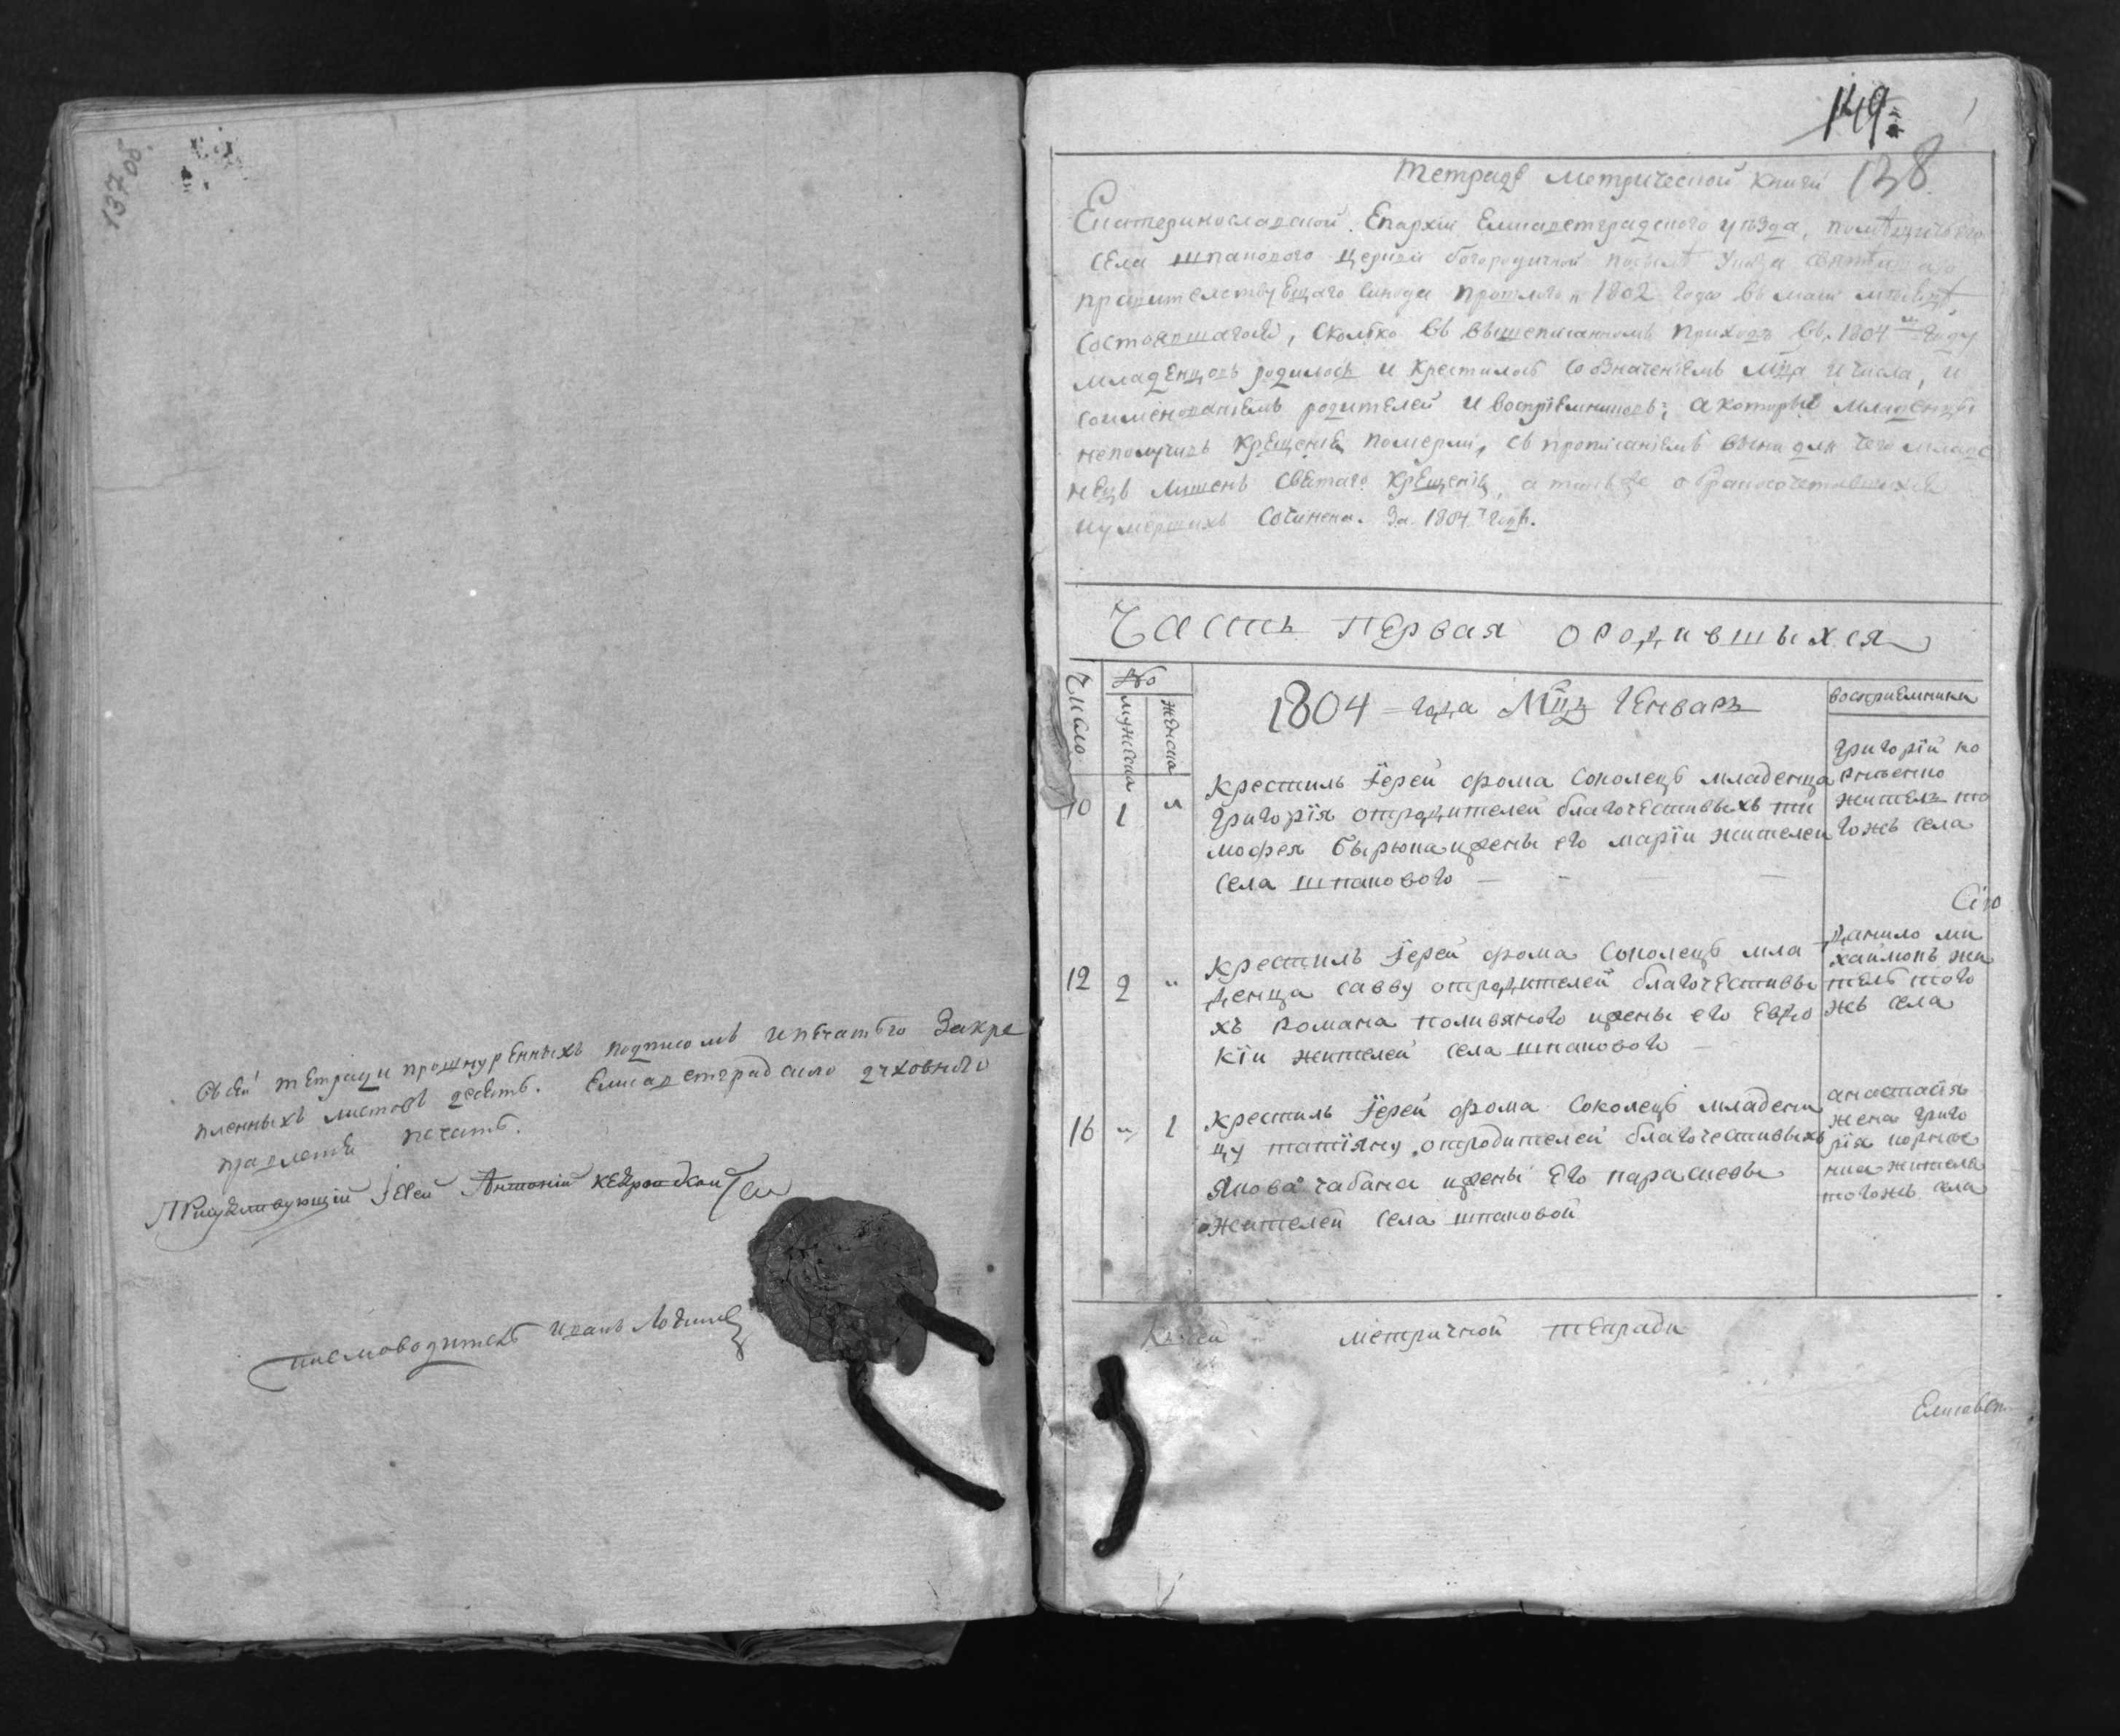 137 об.
Въ сей тетради прошнуренныхъ подписомъ и печатью Закре
пленныхъ листовъ десеть. Елисаветградского духовного
правленія печать.
Присудствующій Іерей Антоній
писмоводитель Иванъ
149
138
Тетрадь метрической книги
Екатеринославской Епархіи Елисаветградского уезда,
села шпанового церкви богородичной
правителствующаго Синода прошлого 1802 года въ маіи
состоявшагося, сколько въ вышеписанномъ приходе въ 1804м году
младенцовъ родилось и крестилось со значеніемъ Мца и числа, и
соименованіемъ родителей и воспріемниковъ; а которые младенцы
неполучивъ крещенія померли, съ прописаніемъ вины для чего младе
нецъ лишенъ святаго крещенія, а такъже о бракосочетавшихся
и умершихъ сочинена. За 1804й годъ.
Часть первая ородившыхся
Число
№
мужеска
женска
1804 года Мцъ Генварь
восприемники
10 1 "
Крестилъ Іерей фома Соколецъ младенца
Григорія отродителей благочестивыхъ ти
мофея Бырюка ижены его маріи жителей
села шпанового
Григорій ко
рниенко
житель то
гожъ села
Сію
12 2 "
Крестилъ Іерей фома Соколецъ мла
денца савву отродителей благочестивы
хъ романа поливяного ижены его Евдо
кіи жителей села шпанового
данило ми
хайлюкъ жи
тель того
жъ села
16 " 1
Крестилъ Іерей фома Соколецъ младени
цу татіяну отродителей благочестивыхъ
Якова чабана ижены его параскевы
жителей села шпановой
анастасія
жена григо
рія корние
нка жителя
тогожъ села
Къ сей метричной тетради
Елисавет